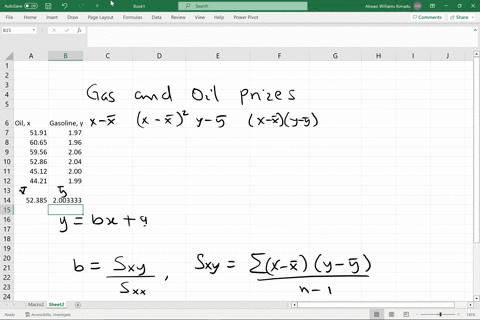 AutoSave Off Book1 Search Aliswei Williams Ronadu
File Home Insert Draw Page Layout Formulas Data Review View Help Power Pivot Comments Share
B15 fx
A B C D E F G H I J
1
2
3
4 Gas and Oil prizes
5
6 Oil, x Gasoline, y x - x̄ (x - x̄)² y - ȳ (x - x̄)(y - ȳ)
7 51.91 1.97
8 60.65 1.96
9 59.56 2.06
10 52.86 2.04
11 45.12 2.00
12 44.21 1.99
13 x̄ ȳ
14 52.385 2.003333
15
16 y = bx + a
17
18
19
20
21 b = Sxy / Sxx , Sxy = Σ(x - x̄)(y - ȳ) / n - 1
22
23
24
Macro1 Sheet2
Ready Accessibility: Investigate